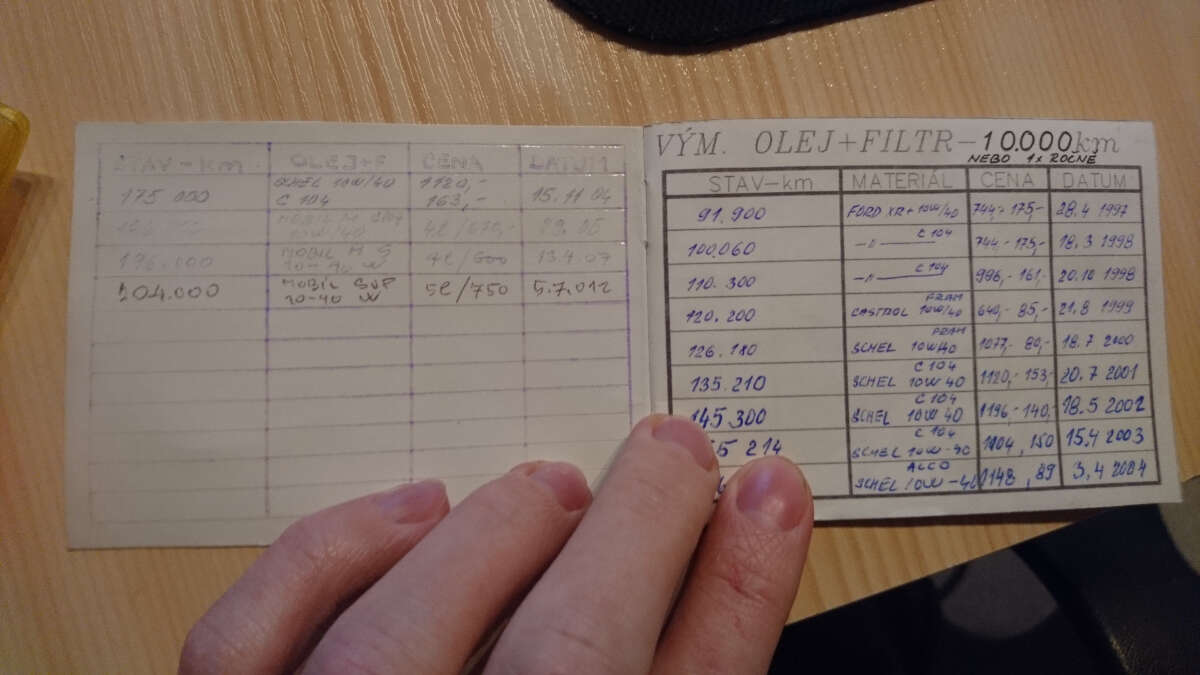 STAV-KM OLEJ+F CENA DATUM
175 000 SCHEL 10W/40 1120,- 15.11 04
C 104 163,-
MOBIL M C104
10W/40 4L/ 29. 06
176.000 MOBIL M S 4L/600 13.4.07
10-40 W
204.000 MOBIL SUP 5L/750 5.7.012
10-40 W
VÝM. OLEJ+FILTR-10.000km
NEBO 1x ROČNE
STAV-km MATERIÁL CENA DATUM
91.900 FORD XR+ 10W/40 744,- 175,- 28.4 1997
100.060 -"- C 104 744- 175,- 18.3 1998
110.300 -"- C104 996,- 161,- 20.10 1998
FRAM
120.200 CASTROL 10W/40 640,- 85,- 21.8 1999
FRAM
126.180 SCHEL 10W40 1077,- 80,- 18.7 2000
C 104
135.210 SCHEL 10W 40 1120,- 153,- 20.7 2001
C 104
145.300 SCHEL 10W 40 1196,- 140,- 18.5 2002
C 104
5 214 SCHEL 10W-40 1104, 150 15,4 2003
ALCO
SCHEL 10W-40 1148, 89 3,4 2004